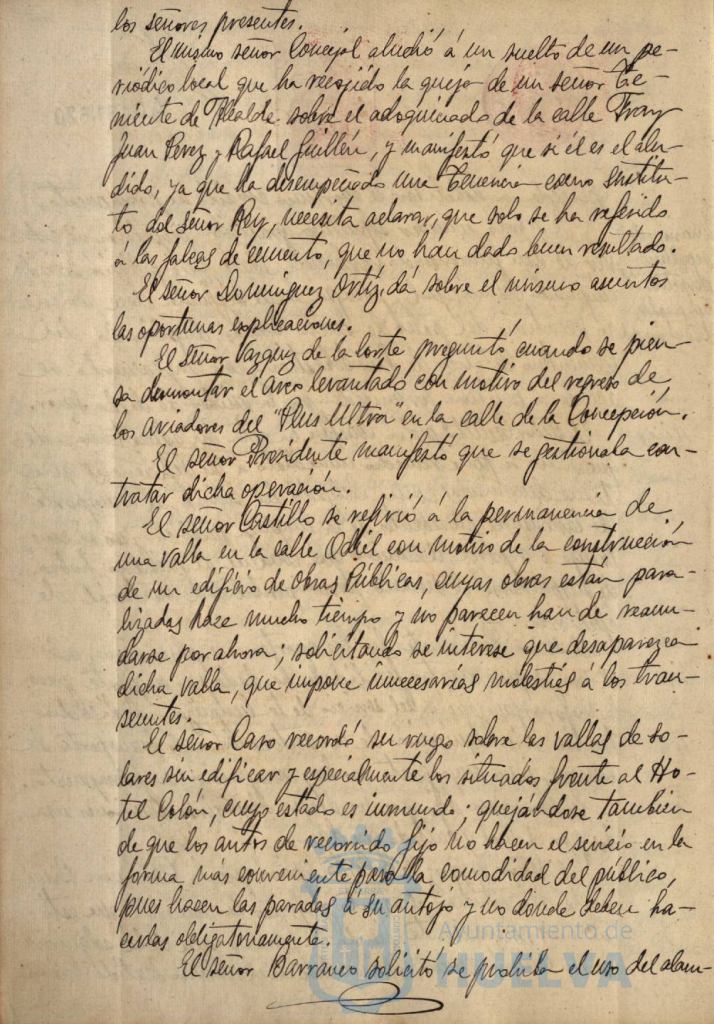 los señores presentes.
El mismo señor Concejal aludió á un suelto de un pe-
riódico local que ha recojido la queja de un señor Te-
niente de Alcalde sobre el adoquinado de la calle Fray
Juan Perez y Rafael Guillén, y manifestó que si él es el alu-
dido, ya que ha desempeñado una Tenencia como sustitu-
to del señor Rey, necesita aclarar, que solo se ha referido
á las fajas de cemento, que no han dado buen resultado.
El señor Domínguez Ortíz, dá sobre el mismo asuntos
las oportunas explicaciones.
El señor Vazquz de la Corte preguntó cuando se pien-
sa desmontar el arco levantado con motivo del regreso de
los aviadores del "Plus Ultra" en la calle de la Concepción.
El señor Presidente manifestó que se gestionala con-
tratar dicha operación.
El señor Castillo se refirió á la permanencia de
una valla en la calle Odiel con motivo de la construcción
de un edificio de Obras Públicas, cuyas obras están para-
lizadas hace mucho tiempo y no parecen han de reanu-
darse por ahora; solicitando se interese que desaparezca
dicha valla, que impone innecesarias molestias á los tran-
seuntes.
El señor Caro recordó su ruego sobre las vallas de so-
lares sin edificar y especialmente los situados frente al Ho-
tel Colón, cuyo estado es inmundo; quejándose tambien
de que los autos de recorrido fijo no hacen el servicio en la
forma más conveniente para la comodidad del público,
pues hacen las paradas á su antojo y no donde deben ha-
cerlas obligatoriamente.
El señor Barranco solicitó se prohiba el uso del alam-
Ayuntamiento de
HUELVA